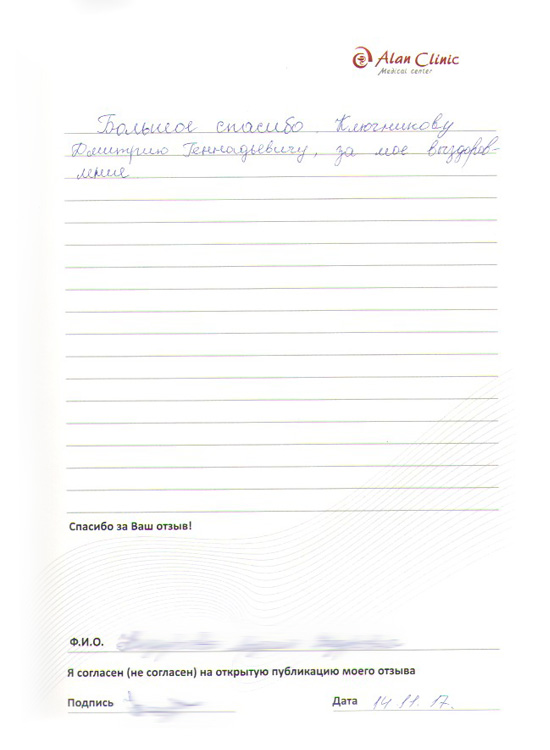 Alan Clinic
Medical center
Большое спасибо Ключникову
Дмитрию Геннадьевичу, за мое выздоров-
ление
Спасибо за Ваш отзыв!
Ф.И.О.
Я согласен (не согласен) на открытую публикацию моего отзыва
Подпись Дата 14.11.17.